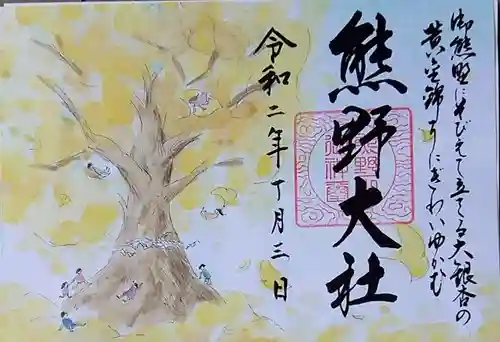 御熊野にそびえて立てる大銀杏の
黄金錦よしにぎわいゆかむ
熊野大社
令和二年丁月三日